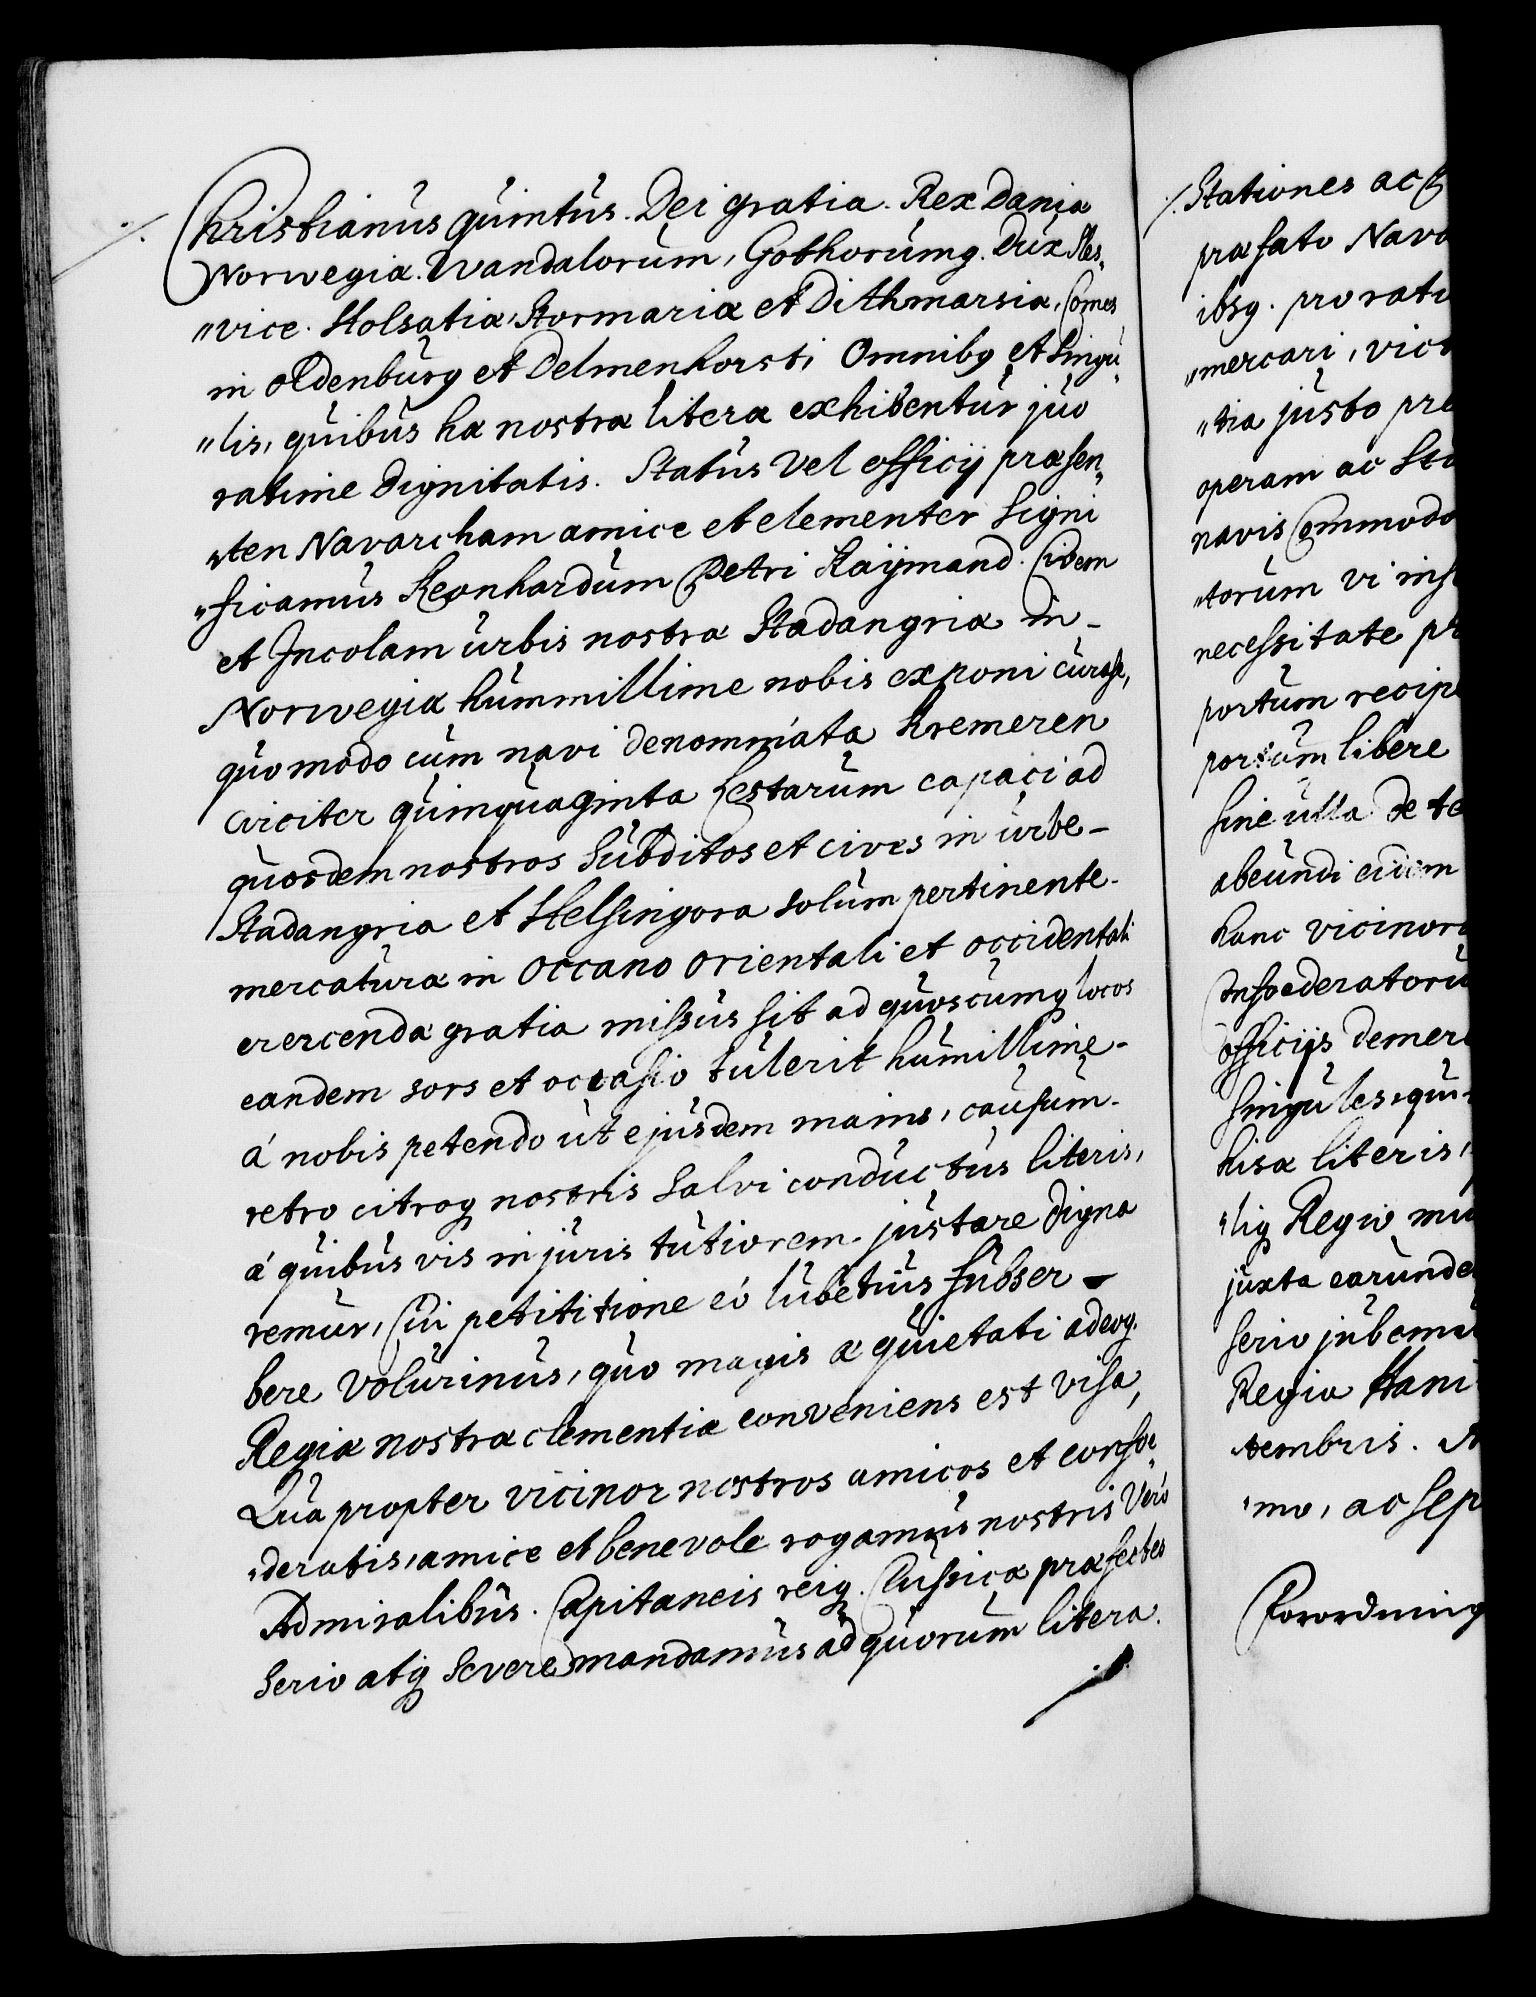 Christianus quintus. Dei gratia. Rex Daniæ
Norwegiæ. Wandalorum, Gothorumq. Dux Sles„
„vice. Holsatiæ, Stormariæ et Dithmarsiæ, Comes
in Oldenburg et Delmenhorst, Omnibq et singu„
„lis, quibus hæ nostræ literæ exhibentur juo
ratime dignitatis. Status vel officij præsen„
„ten Navarcham amice et elementer signi
„ficamus Leonhardum Petri Kaijmand. Civem
et Incolam urbis nostræ Stadangriæ in-
Norwegiæ hummillime nobis exponi curasse,
quomodo cum navi denominata Kremeren
circiter quinquaginta Lestarum capaci ad
quosdem nostros Subditos et cives in urbe-
Stadangria et Helsingora solum pertinente-
mercaturæ in Occano orientali et occidentali
erercendæ gratia missus sit ad quoscumq locos
eandem sors et occasio tulerit humillime-
á nobis petendo ut ejusdem mains, causum-
retro citroq nostris salvi conductus literis,
á quibus vis injuris tutiorem justare digna
remur, Cui petititione eó lubetius subser-
bere volurinus, quo magis æquietati adeoq.
Regiæ nostræ clementiæ conveniens est visa,
Qua propter vicinor nostros amicos et confoe„
„deratis, amice et benevole rogamus nostris Veró
Admiralibus. Capitaneis reiq. Classicæ præfectes
serio atq severe mandamus ad quorum litera.
./.
/. Stationes ac
præfato Nava
ibsq. pro ratu
„mercari, vict
„tia justo pre
operam ac
navis Commodo
„torum vi inf
necessitate pr
portum recipe
portum libere
sine ulla de te
abeundi
hanc vicinor
Infoederatoru
officijs demer
singules, qui
hisæ literis,
„liq Regio mu
juxta earunde
serio jubemu
Regia Hafni
„tembris. A
„mo, ac sep
Forordning